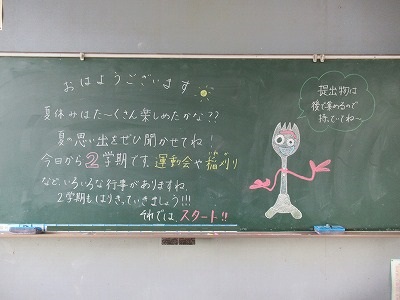 おはようございます
夏休みはた〜くさん楽しめたかな??
夏の思い出をぜひ聞かせてね!
今日から2学期です。運動会や稲刈り
など、いろいろな行事がありますね。
2学期もはりきっていきましょう!!!
それでは スタート!!
提出物は
後で集めるので
待っていてね〜